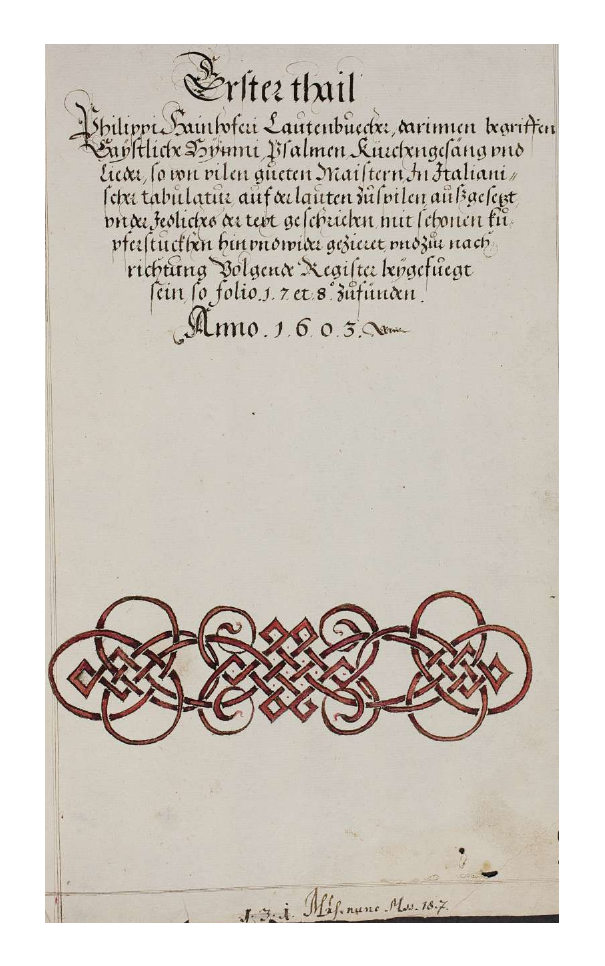 Erster thail
Philippi Hainhoferi Lautenbuecher, darinnen begriffen
Gaÿstliche Hÿmni Psalmen Kürchengesäng vnd
Lieder, so von vilen gueten Maistern, In Italiani=
scher tabulatur, auf der lauten zŭspilen außgesetzt,
vnder Jedliches der text geschrieben, mit schönen kŭ
pferstuckhen hin vnd wider gezieret, vnd zŭr nach
richtŭng Volgende Register beÿgefŭegt
sein, so folio .1. 7. et. 8. zŭfŭnden.
Anno . 1 6 0 3.
Mss. 18. 7.